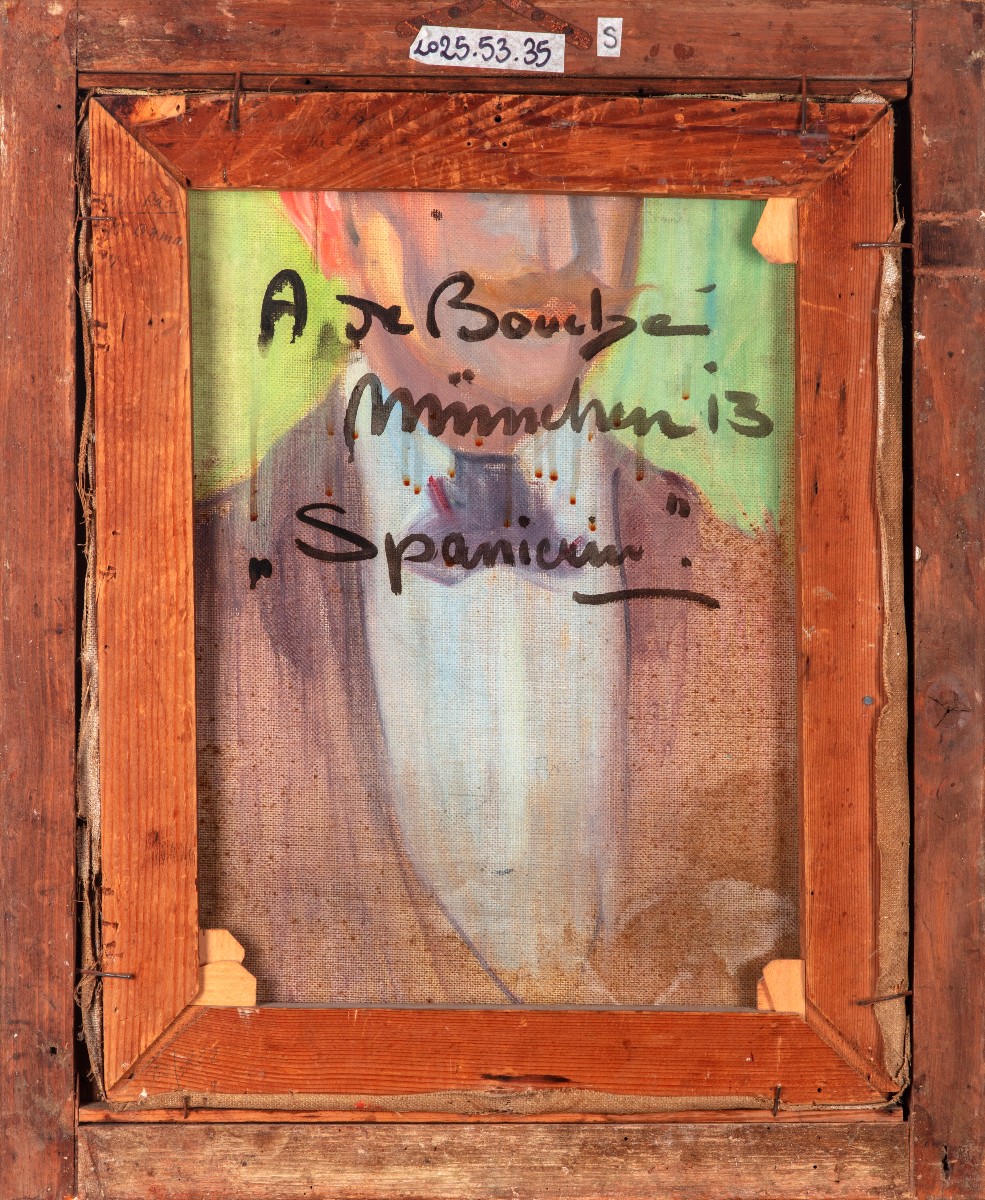 2025.53.35
S
A de Bouché
München 13
„Spanierin".